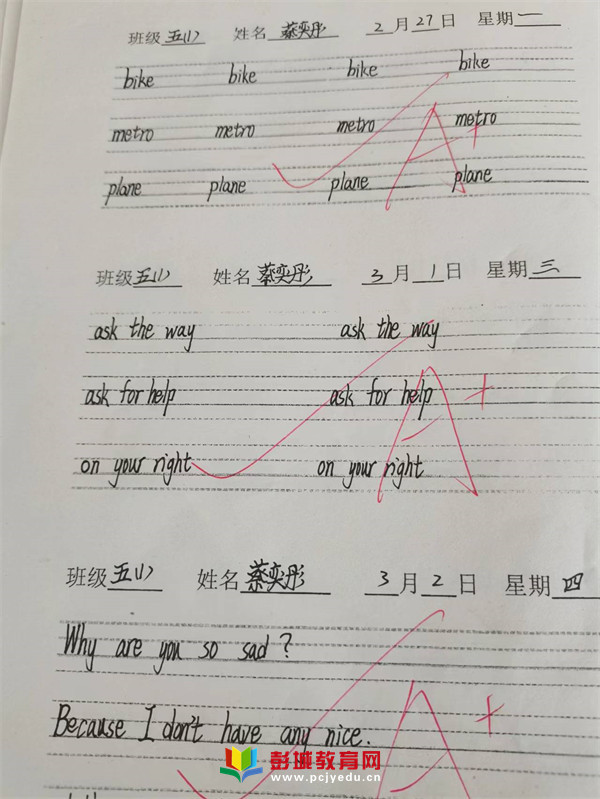 班级 五(1) 姓名 蔡奕彤 2 月 27 日 星期 一
bike bike bike bike
metro metro metro metro
plane plane plane plane
A+
班级 五(1) 姓名 蔡奕彤 3 月 1 日 星期 三
ask the way ask the way
ask for help ask for help
on your right on your right
A+
班级 五(1) 姓名 蔡奕彤 3 月 2 日 星期 四
Why are you so sad?
Because I don't have any nice.
A+
彭城教育网
www.pcjyedu.cn